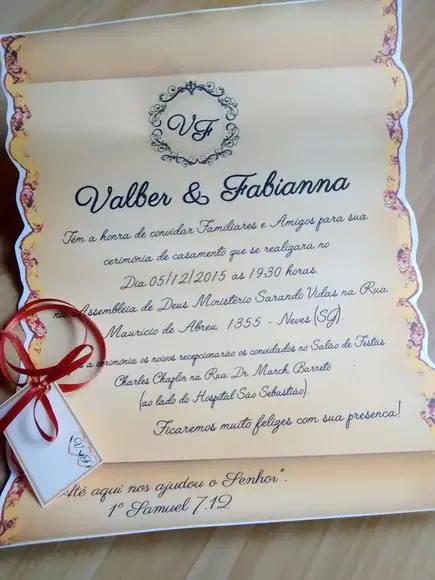 VF
Valber & Fabianna
Têm a honra de convidar Familiares e Amigos para sua
cerimônia de casamento que se realizará no
Dia 05/12/2015 às 19:30 horas.
na Assembléia de Deus Ministério Sarando Vidas na Rua
Mauricio de Abreu, 1355 - Neves (SG).
a cerimônia os noivos recepcionarão os convidados no Salão de Festas
Charles Chaplin na Rua Dr. March. Barreto
(ao lado do Hospital São Sebastião).
Ficaremos muito felizes com sua presença!
"Até aqui nos ajudou o Senhor".
1º Samuel 7.12